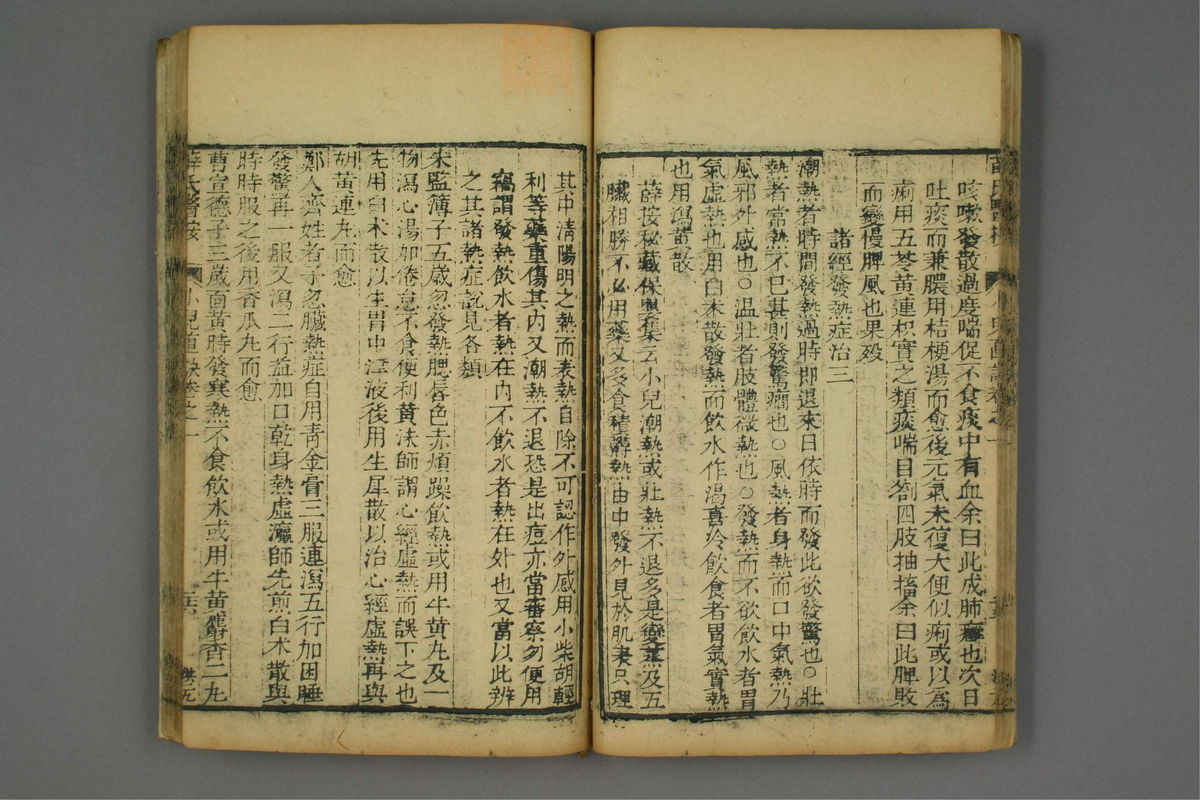 咳嗽發散過度喘促不食痰中有血余曰此成肺癰也次日
吐痰而兼膿用桔梗湯而愈後元氣未復大便似痢或以爲
痢用五苓黃連枳實之類痰喘目劄四肢抽搐余曰此脾敗
而變慢脾風也果歿
諸經發熱症治三
潮熱者時間發熱過時卽退來日依時而發此欲發驚也○壯
熱者常熱不已甚則發驚癎也○風熱者身熱而口中氣熱乃
風邪外感也○温壯者肢體微熱也○發熱而不欲飲水者胃
氣虛熱也用白术散發熱而飲水作渴喜冷飲食者胃氣實熱
也用瀉黃散
薛按秘藏保嬰集云小兒潮熱或壯熱不退多是變蒸及五
臟相勝不必用藥又多食積欝熱由中發外見於肌表只理
其中清陽明之熱而表熱自除不可認作外感用小柴胡輕
利等藥重傷其內又潮熱不退恐是出痘亦當審察勿便用
竊謂發熱飲水者熱在内不飲水者熱在外也又當以此辨
之其諸熱症說見各類
朱監簿子五歲忽發熱腮唇色赤煩躁飲熱或用牛黃丸及一
物瀉心湯加倦怠不食便利黃沫師謂心經虛熱而誤下之也
先用白术散以生胃中津液後用生犀散以治心經虛熱再與
胡黃連丸而愈
鄭人齊姓者子忽臟熱症自用青金膏三服連瀉五行加困睡
發驚再一服又瀉二行益加口乾身熱虛瀛師先煎白术散與
時時服之後用香瓜丸而愈
曹宣德子三歲面黃時發寒熱不食飲水或用牛黃麝香二丸
薛氏醫按 小兒直訣卷之一